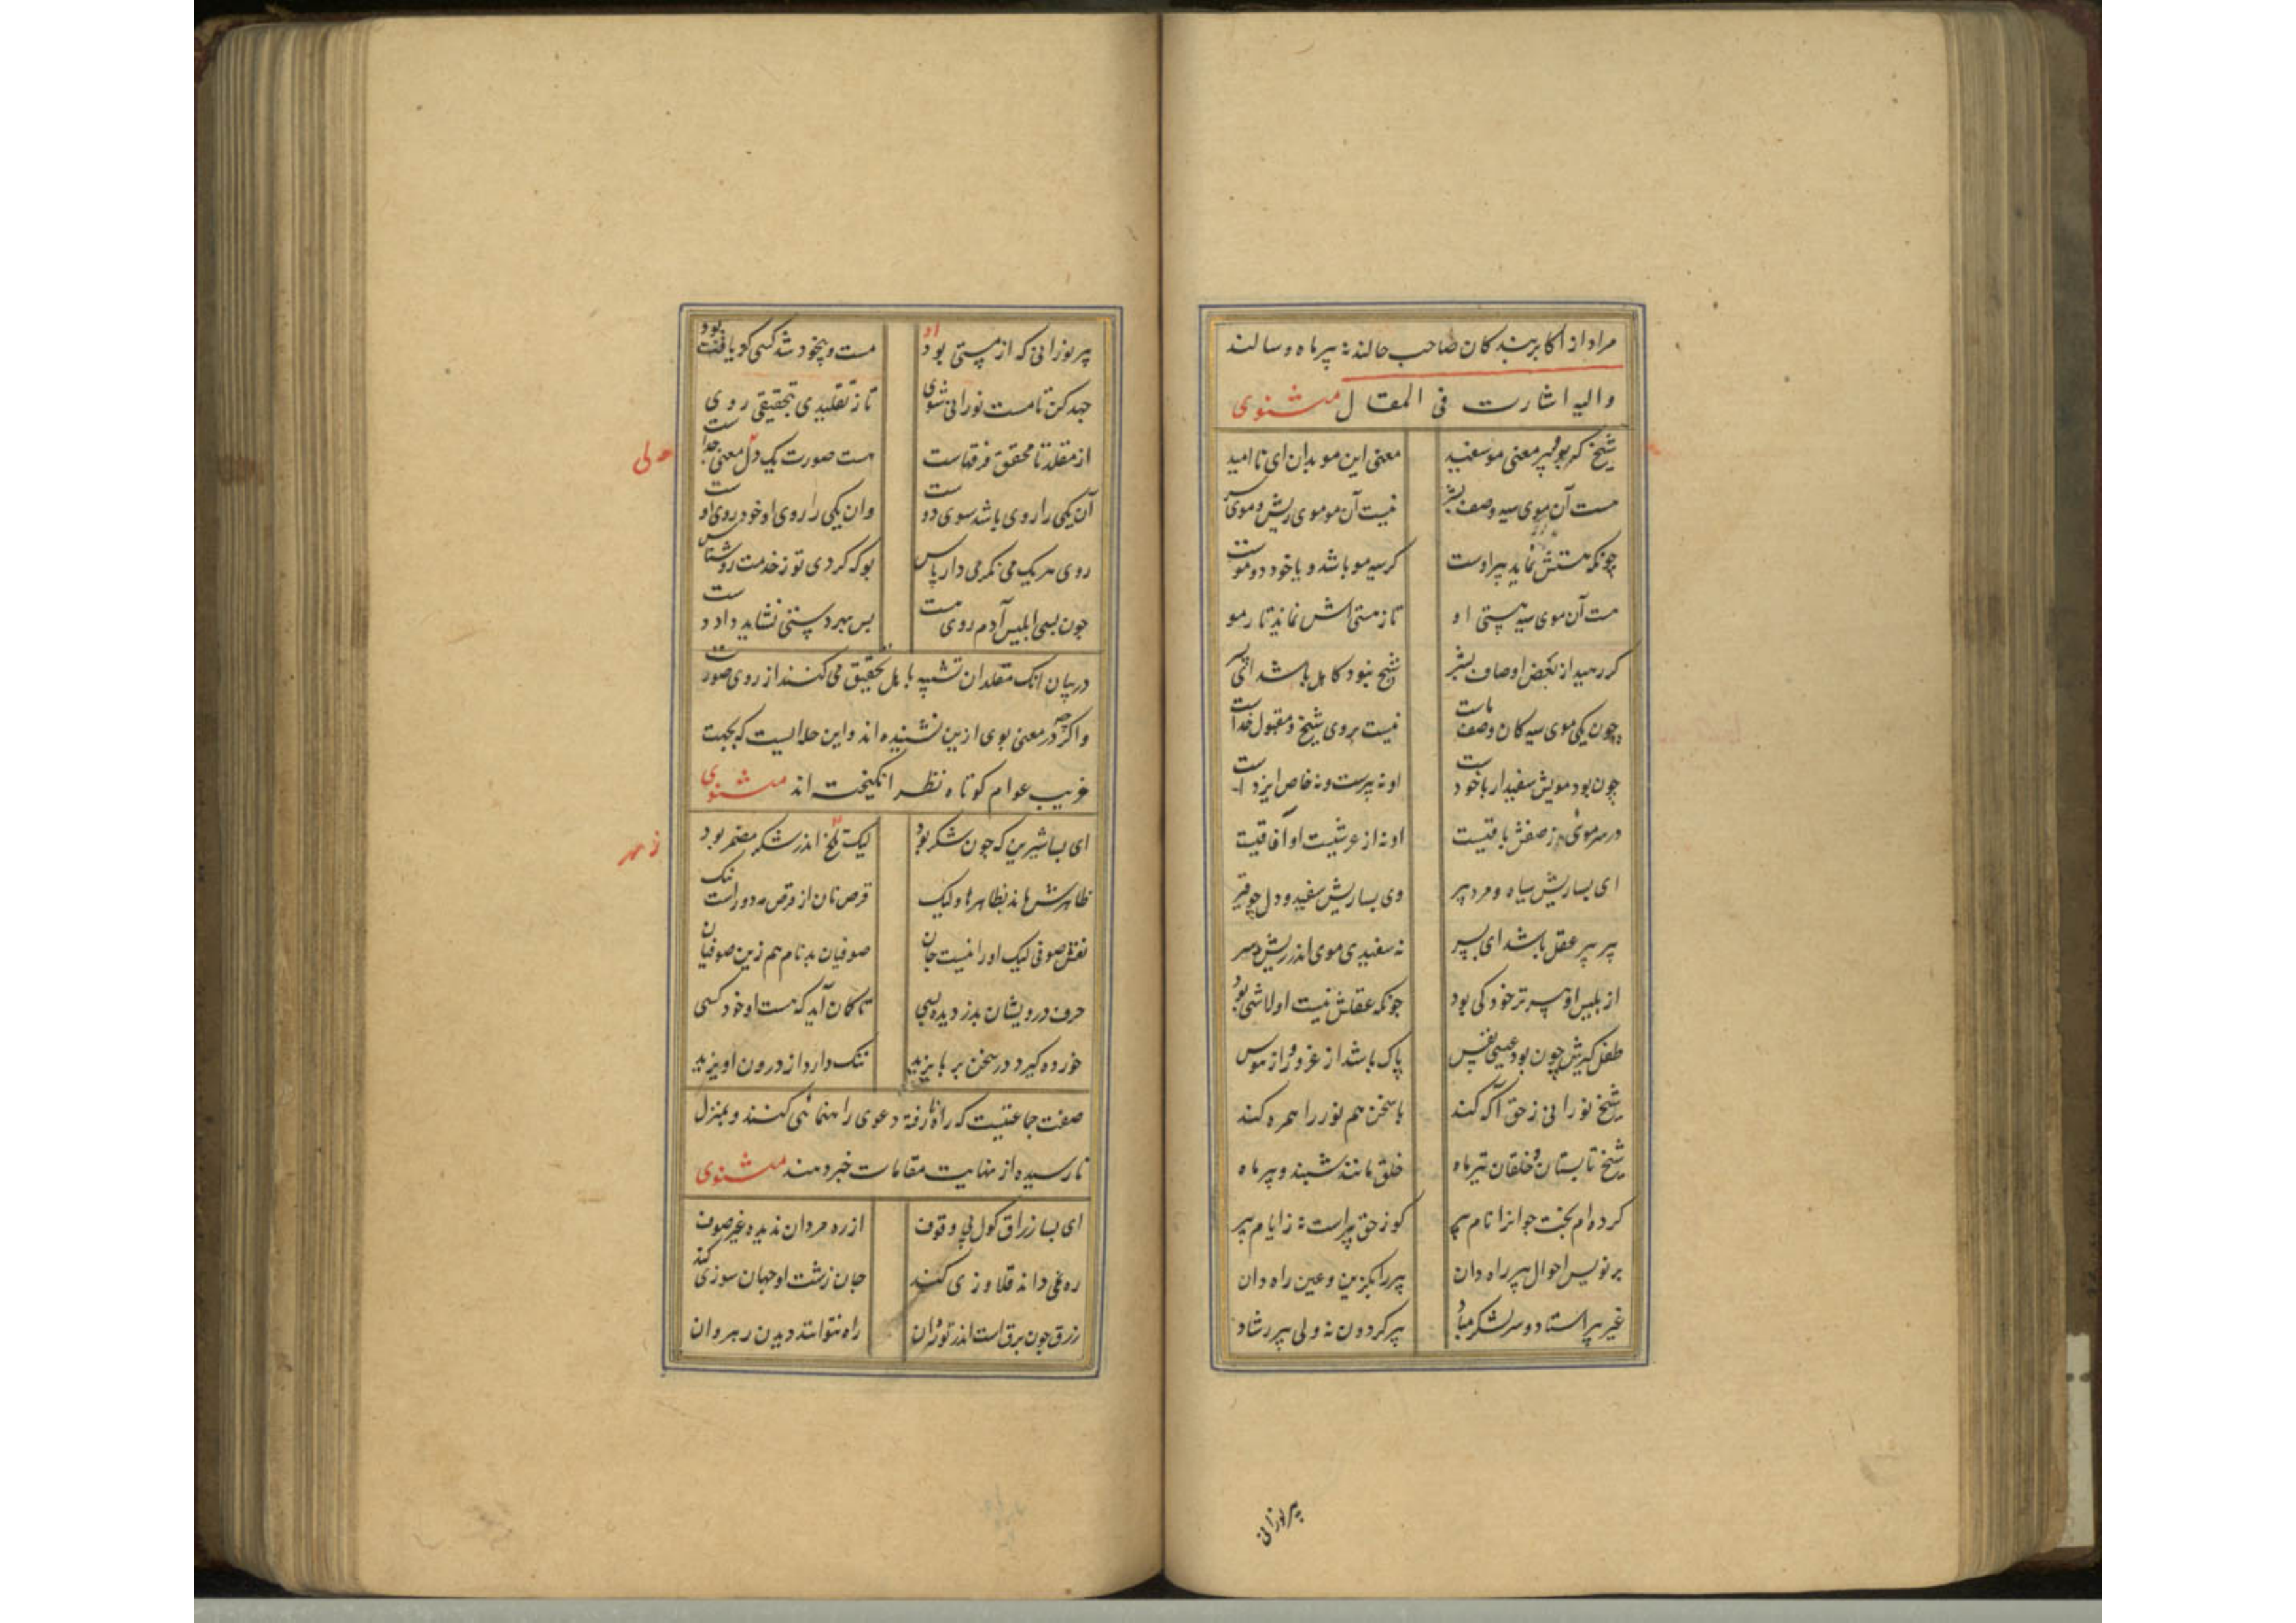 مراد از اکابر بندکان صاحب حالند نه پیر ماه و سالند
والیه اشارت فی المقال مثنوی
شیخ که بود پیر معنی مو سفید معنی این مو بدان ای نا امید
هست آن موی سیه وصف بشر نیست آن مو موی ریش و موی سر
چونکه هستیش نماند پیر اوست کر سیه مو باشد و یا خود دو موست
هست آن موی سیه هستی او تا ز هستی اش نماند تار مو
کر رهید از بعض اوصاف بشر شیخ نبود کاهل باشد ای پسر
چون یکی موی سیه کان وصف ماست نیست بر وی شیخ و مقبول خداست
چون بود مویش سفید ار با خود است او نه پیرست و نه خاص ایزد است
ور سر موئی ز وصفش باقیست او نه از عرشیست او آفاقیست
ای بسا ریش سیاه و مرد پیر وی بسا ریش سفید و دل چو قیر
پیر پیر عقل باشد ای پسر نه سفیدی موی اندر ریش و سر
از بلیس او پیرتر خود کی بود چونکه عقلش نیست او لاشی بود
طفل کیرش چون بود عیسی نفس پاک باشد از غرور و از هوس
شیخ نورانی ز حق آکه کند با سخن هم نور را همره کند
شیخ تابستان و خلقان تیر ماه خلق مانند شبند و پیر ماه
کرده ام بخت جوانرا نام پیر کو ز حق پیر است نه ز ایام پیر
بر نویس احوال پیر راه دان پیر را بکزین و عین راه دان
غیر پیر استاد و سر لشکر مباد پیر کردون نه ولی پیر رشاد
پیر نورانی
پیر نورانی که از هستی بود مست و بیخود شد کسی کو یافت بود
جهد کن تا مست نورانی شوی تا ز تقلیدی بتحقیقی روی
از مقلد تا محقق فرقهاست هست صورت یک ول معنی جداست
آن یکی را روی باشد سوی دوست وان یکی را روی او خود روی اوست
روی هر یک می نکر می دار پاس بو که کردی تو ز خدمت روشناس
چون بسی ابلیس آدم روی هست پس بهر دستی نشاید داد دست
در بیان انک مقلدان تشبه باهل تحقیق می کنند از روی صورت
و اکرچه در معنی بوی ازین نشنیده اند و این حالیست که بجهت
فریب عوام کوتاه نظر انکیخته اند مثنوی
ای بسا شیرین که چون شکر بود لیک تلخ اندر شکر مضمر بود
زهر
ظاهرش ماند بظاهرها ولیک قرص نان از قرص مه دور است نیک
نقش صوفی لیک او را نیست جان صوفیان بدنام هم زین صوفیان
حرف درویشان بدزدیده بسی تا کمان آید که هست او خود کسی
خورده کیرد در سخن بر بایزید ننک دارد از درون او یزید
صفت جماعتیست که راه نارفته دعوی راهنمائی کنند و بمنزل
نارسیده از نهایت مقامات خبر دهند مثنوی
ای بسا زراق کول بی وقوف از ره مردان ندیده غیر صوف
ره نمی داند قلاوزی کند جان زشت او جهان سوزی کند
زرق چون برق است اندر نور آن راه نتوانند دیدن رهروان